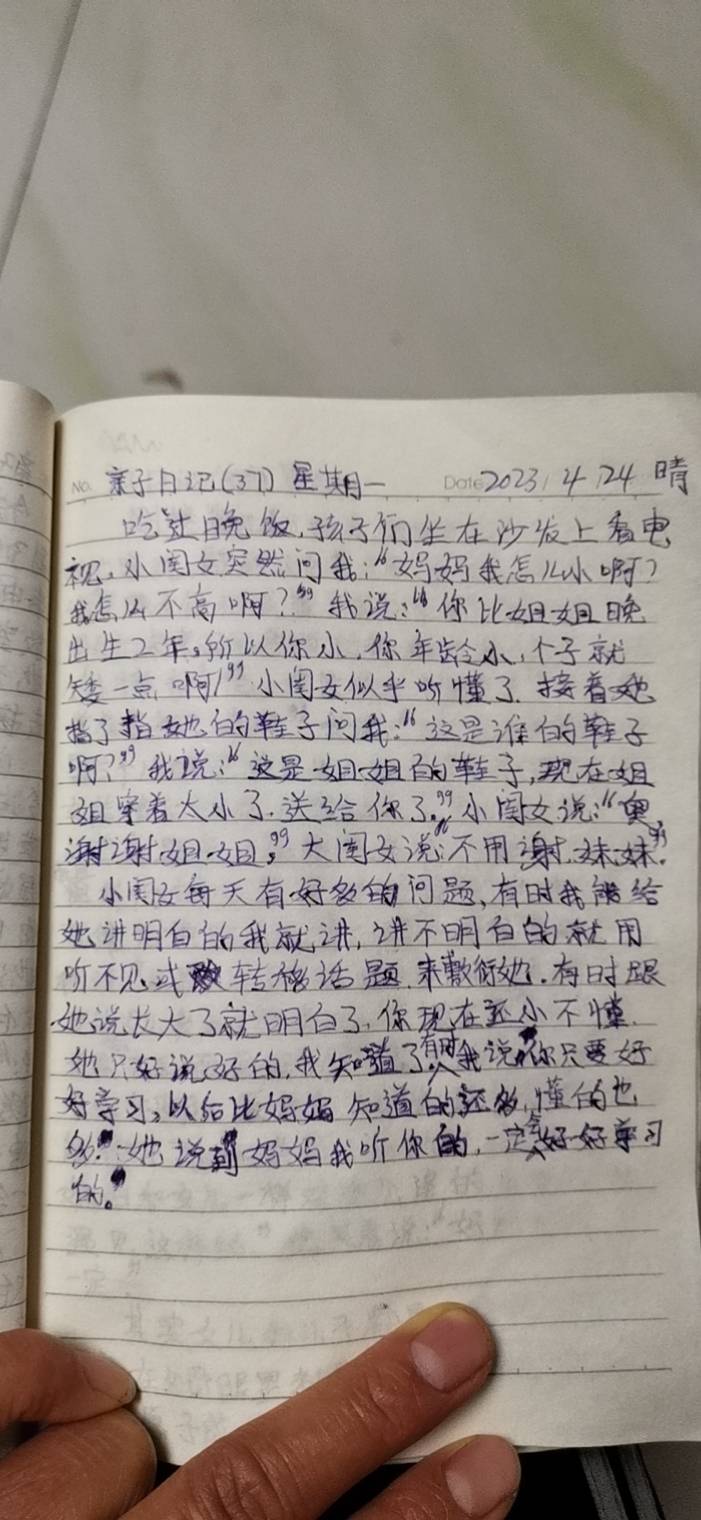 No. 亲子日记(37) 星期一 Date 2023/4/24 晴
吃过晚饭,孩子们坐在沙发上看电
视,小闺女突然问我:“妈妈我怎么小啊?
我怎么不高啊?”我说:“你比姐姐晚
出生2年。所以你小,你年龄小,个子就
矮一点啊!”小闺女似乎听懂了.接着她
指了指她的鞋子问我:“这是谁的鞋子
啊?”我说:“这是姐姐的鞋子,现在姐
姐穿着太小了.送给你了。”小闺女说:“奥,
谢谢姐姐。”大闺女说:“不用谢.妹妹.”
小闺女每天有好多的问题,有时我能给
她讲明白的我就讲,讲不明白的就用
听不见或转移话题.来敷衍她.有时跟
她说长大了就明白了,你现在还小不懂.
她只好说好的,我知道了有时我说“你只要好
好学习,以后比妈妈知道的还多,懂的也
多”.她说到“妈妈我听你的,一定会好好学习
的。”